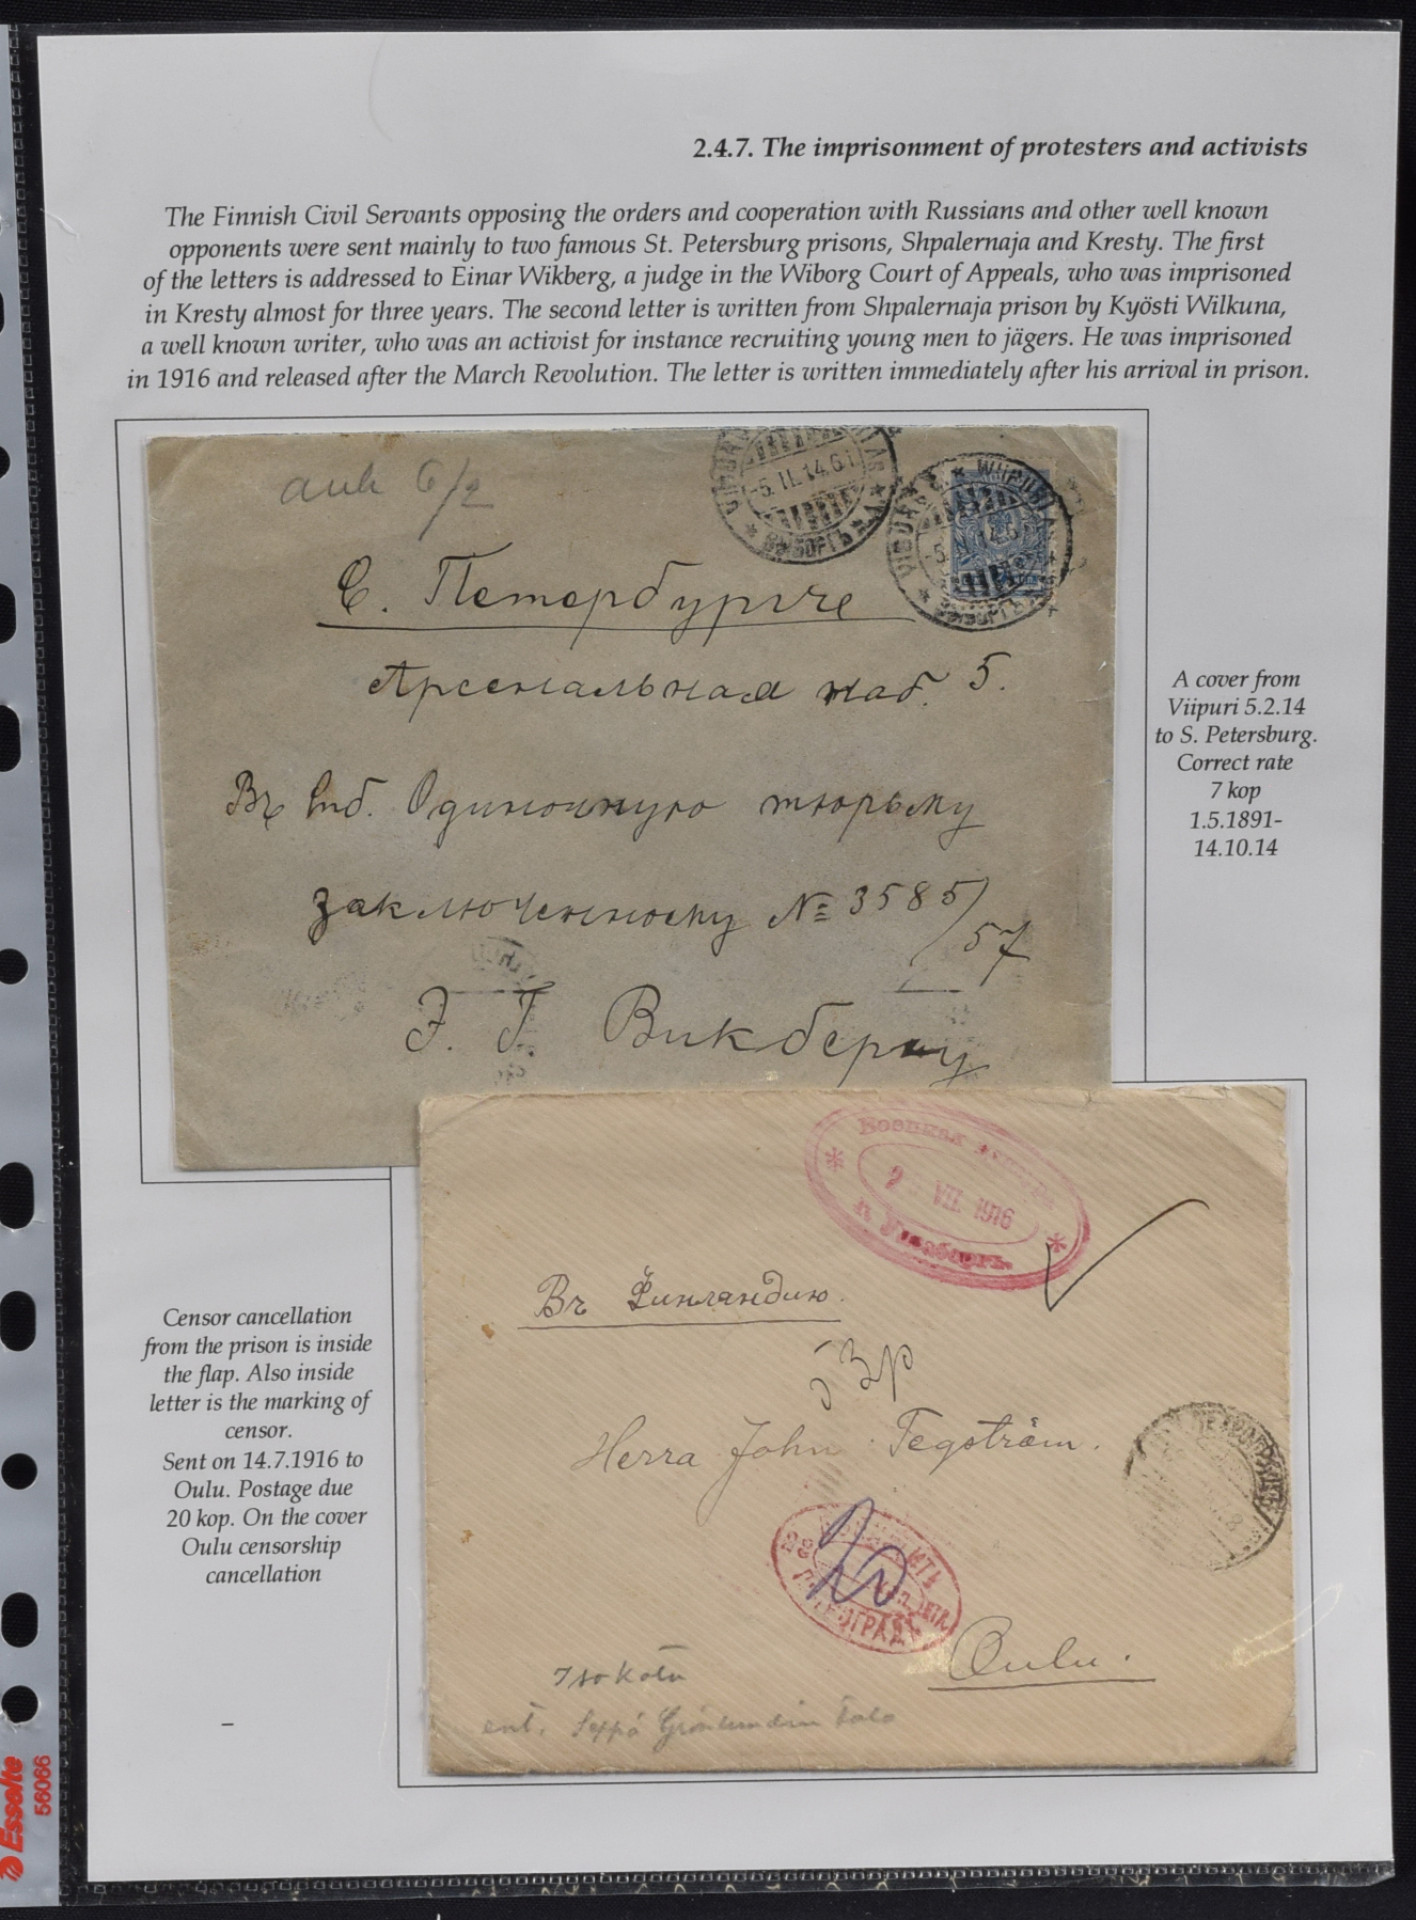 2.4.7. The imprisonment of protesters and activists
The Finnish Civil Servants opposing the orders and cooperation with Russians and other well known
opponents were sent mainly to two famous St. Petersburg prisons, Shpalernaja and Kresty. The first
of the letters is addressed to Einar Wikberg, a judge in the Wiborg Court of Appeals, who was imprisoned
in Kresty almost for three years. The second letter is written from Shpalernaja prison by Kyösti Wilkuna,
a well known writer, who was an activist for instance recruiting young men to jägers. He was imprisoned
in 1916 and released after the March Revolution. The letter is written immediately after his arrival in prison.
ank 6/2
5.II.14.6
ВЫБОРГЪ
WIIPURI
С. Петербургъ
Арсенальная наб. 5.
Въ Спб. Одиночную тюрьму
заключенному № 3585/57
Э. Г. Викбергу
A cover from
Viipuri 5.2.14
to S. Petersburg.
Correct rate
7 kop
1.5.1891-
14.10.14
Военная
VII. 1916
Въ Финляндию.
Herra John Tegström.
20
Oulu.
Isokatu
ent. Seppä Grönlundin talo
Censor cancellation
from the prison is inside
the flap. Also inside
letter is the marking of
censor.
Sent on 14.7.1916 to
Oulu. Postage due
20 kop. On the cover
Oulu censorship
cancellation
Esselte
56066